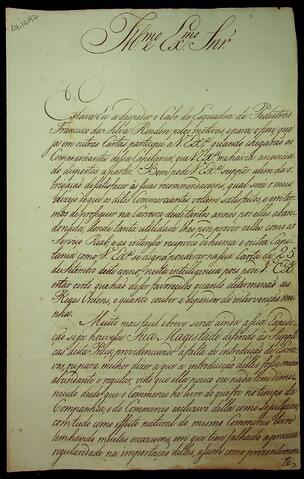 Illmo e Exmo Snr
Estava eu a despedir o Cabo de Esquadra de Pedestres
Francisco da Silva Rendon pelos motivos, e para o fim, que
já em outras Cartas participei a V. Exa. quando chegaras os
Commerciantes dessa Capitania, que V. Exa. me havia anuncia-
do dispostos a partir. Bem pode V. Exa. suppor além da o-
brigação de satisfazer ás suas recommendaçoens, qual será o meu
dezejo de que os ditos Commerciantes voltem satisfeitos, e con ter-
mos de proseguir na Carreira a tantos annos por elles aban-
donada, donde tanta utilidade lhes pode provir a elles como ao
Serviço Real, e ao interesse reciproco de huma e outra Capi-
tania como V. Exa. se digna ponderar na sua Carta de 23
de Setembro deste anno; nesta intelligencia pois pode V. Exa.
estar certo que hão de ser favorecidos quanto determinão as
Regias Ordens, e quanto couber e depender da intervenção mi-
nha.
Muito mais facil e breve seria ainda a sua Expedi-
ção se já houvesse Sua Magestade deferido ás Supplicas
desta Praça, providenciando a falta de introdução de Escra-
vos; ou para melhor dizer a que a introducção delles fosse mais
abundante e regular, visto que ella pouco ou nada tem diminu-
nuido desde que o Commercio he livre do que foi no tempo da
Companhia; e do Commercio exclusivo della como se
com tudo como effeito natural do mesmo Commercio livre
tem havido muitas occazioens em que tem falhado a precisa
regularidade na importação delles, assim como prezentemente